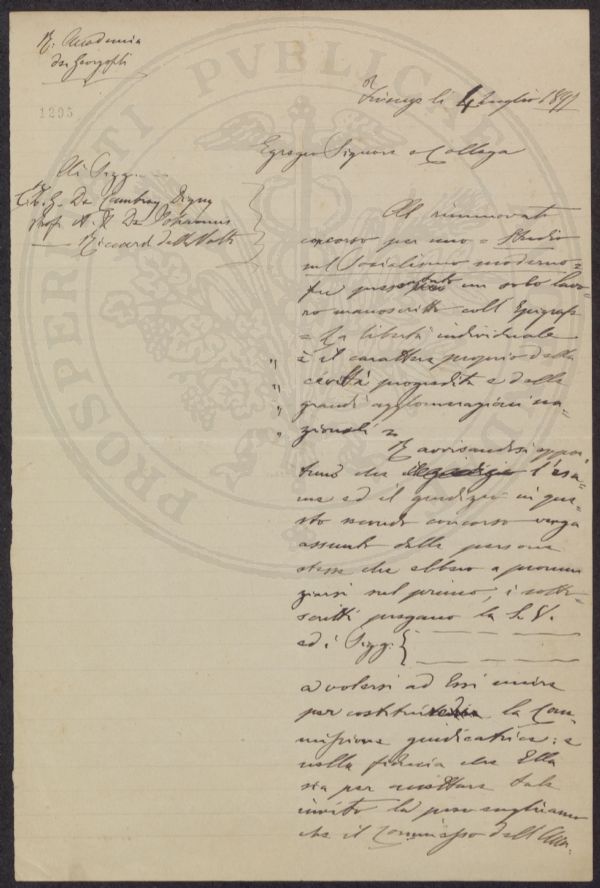 R. Accademia
dei Georgofili
1295
Firenze li 4 Luglio 1891
Egregio Signore e Collega
Ai Sigg.
C. G. De Cambray Digny
Prof. A. De Johannis
Riccardo Dalla Volta
Al rinnovato
concorso per uno = Studio
sul Socialismo moderno =
fu presentato un solo lavo-
ro manoscritto coll'Epigrafe
= La libertà individuale
" è il carattere proprio della
" civiltà progredita e delle
" grandi agglomerazioni na-
zionali =
Ravvisandosi oppor-
tuno che l'esa-
me ed il giudizio in que-
sto secondo concorso venga
assunto dalle persone
stesse che ebbero a pronun
ziarsi sul primo, i sotto-
scritti pregano la S. V.
ed i Sigg.
a volersi ad Essi unire
per costituire la Com-
missione giudicatrice: e
nella fiducia che Ella
sia per accettare tale
invito la prevenghiamo
che il Commesso dell'Acca-
PROSPERITATI PUBLICAE